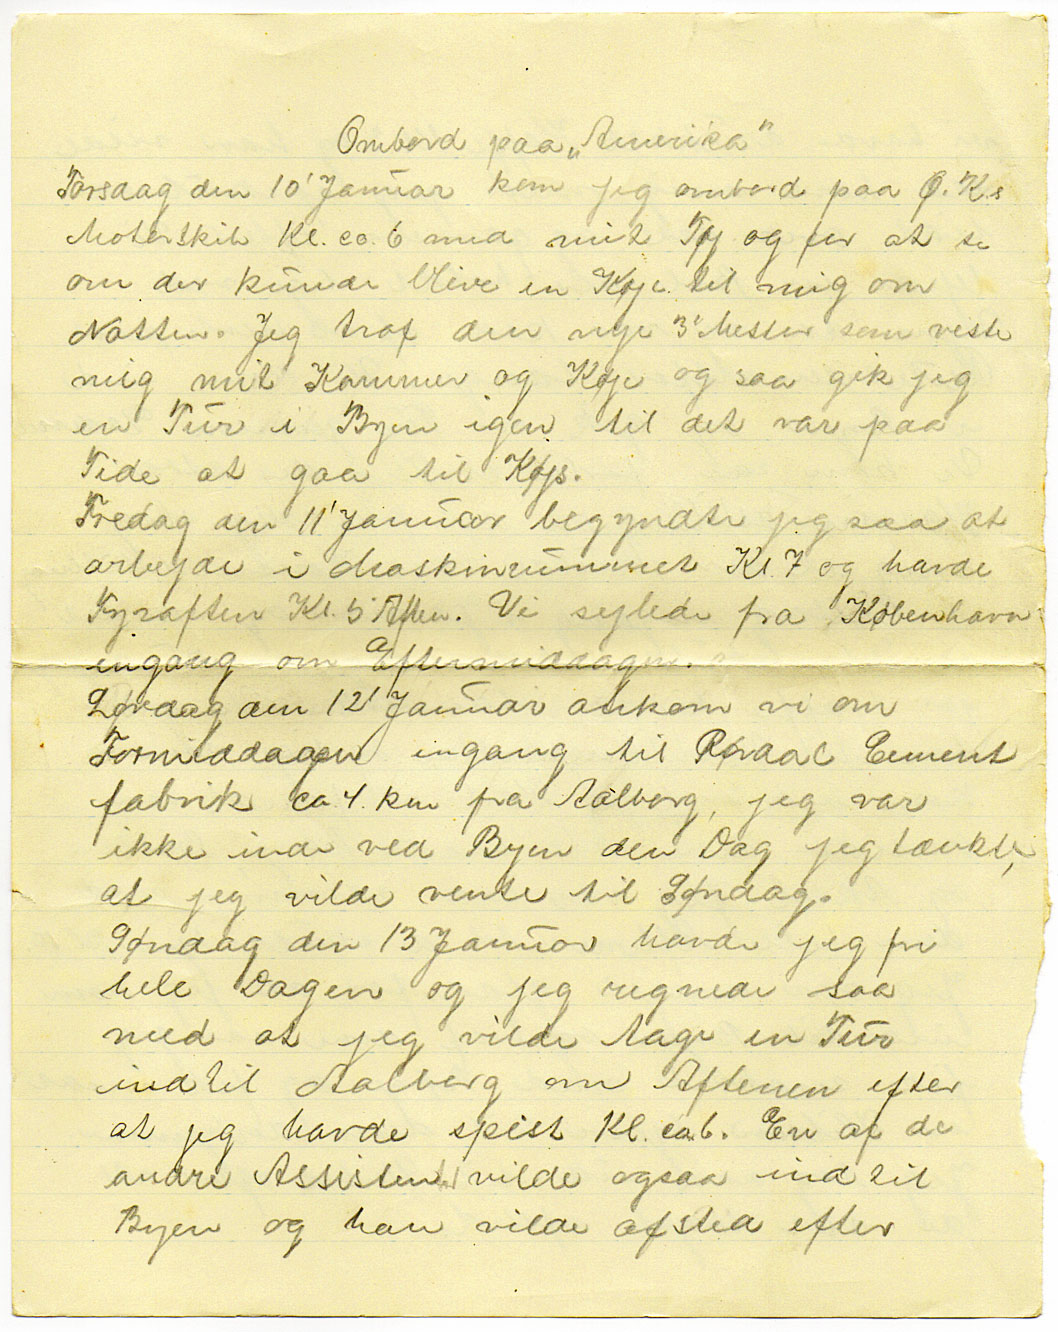 Ombord paa „Amerika"
Torsdag den 10' Januar kom jeg ombord paa Ø.K.s
Motorskib Kl. ca. 6 med mit Tøj og for at se
om der kunde blive en Køje til mig om
Natten. Jeg traf den nye 3' Mester som veste
mig mit Kammer og Køje og saa gik jeg
en Tur i Byen igen til det var paa
Tide at gaa til Køjs.
Fredag den 11' Januar begyndte jeg saa at
arbejde i Maskinrummet Kl. 7 og havde
Fyraften Kl. 5 Aften. Vi sejlede fra København
engang om Eftermiddagen.
Lørdag den 12' Januar ankom vi om
Formiddagen engang til Rørdal Cement
fabrik ca 4. km fra Aalborg, jeg var
ikke inde ved Byen den Dag jeg tænkte,
at jeg vilde vente til Søndag.
Søndag den 13 Januar havde jeg fri
hele Dagen og jeg regnede saa
med at jeg vilde tage en Tur
ind til Aalborg om Aftenen efter
at jeg havde spist Kl. ca. 6. En af de
andre Assistenter vilde ogsaa ind til
Byen og han vilde afsted efter